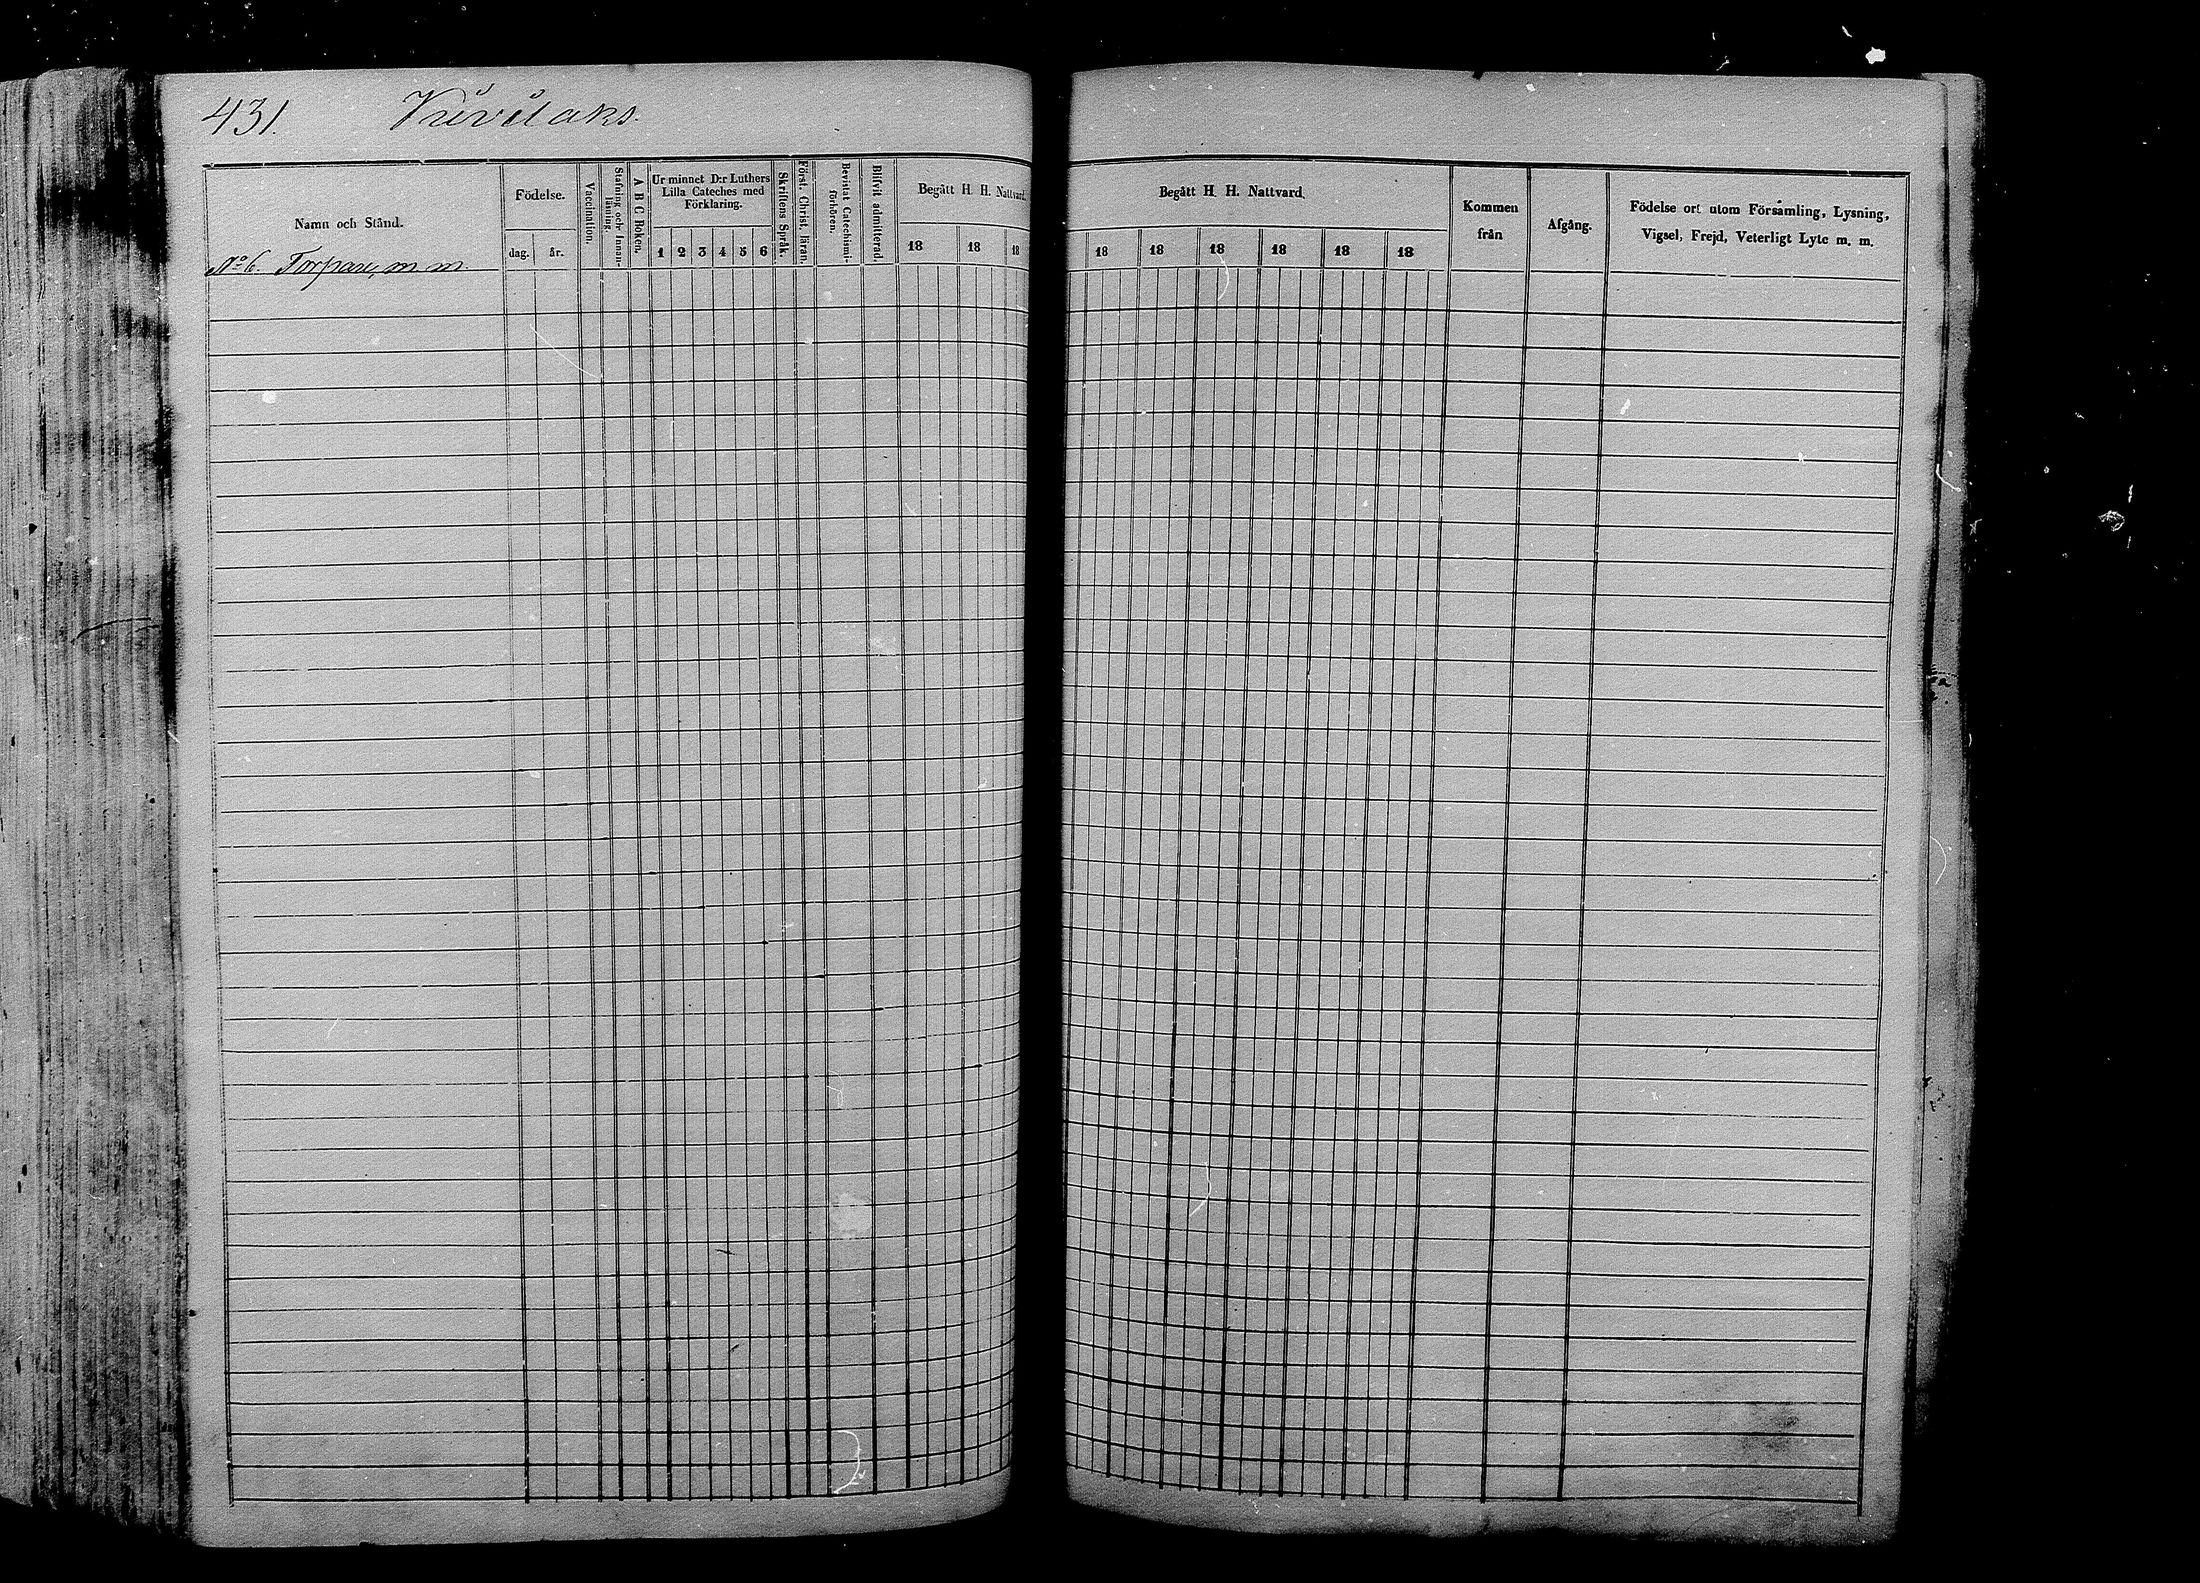 431. Kuvilaks.
Namn och Stånd.
Födelse.
dag. år.
Vaccination.
Stafning och Innan-
läsning.
A B C Boken.
Ur minnet D:r Luthers
Lilla Cateches med
Förklaring.
1 2 3 4 5 6
Skriftens Språk.
Först. Christ. läran.
Bevistat Catechismi-
förhören.
Blifvit admitterad.
Begått H. H. Nattvard.
18 18 18
Begått H. H. Nattvard.
18 18 18 18 18 18
Kommen
från
Afgång.
Födelse ort utom Församling, Lysning,
Vigsel, Frejd, Veterligt Lyte m. m.
No 6. Torpare, m m.